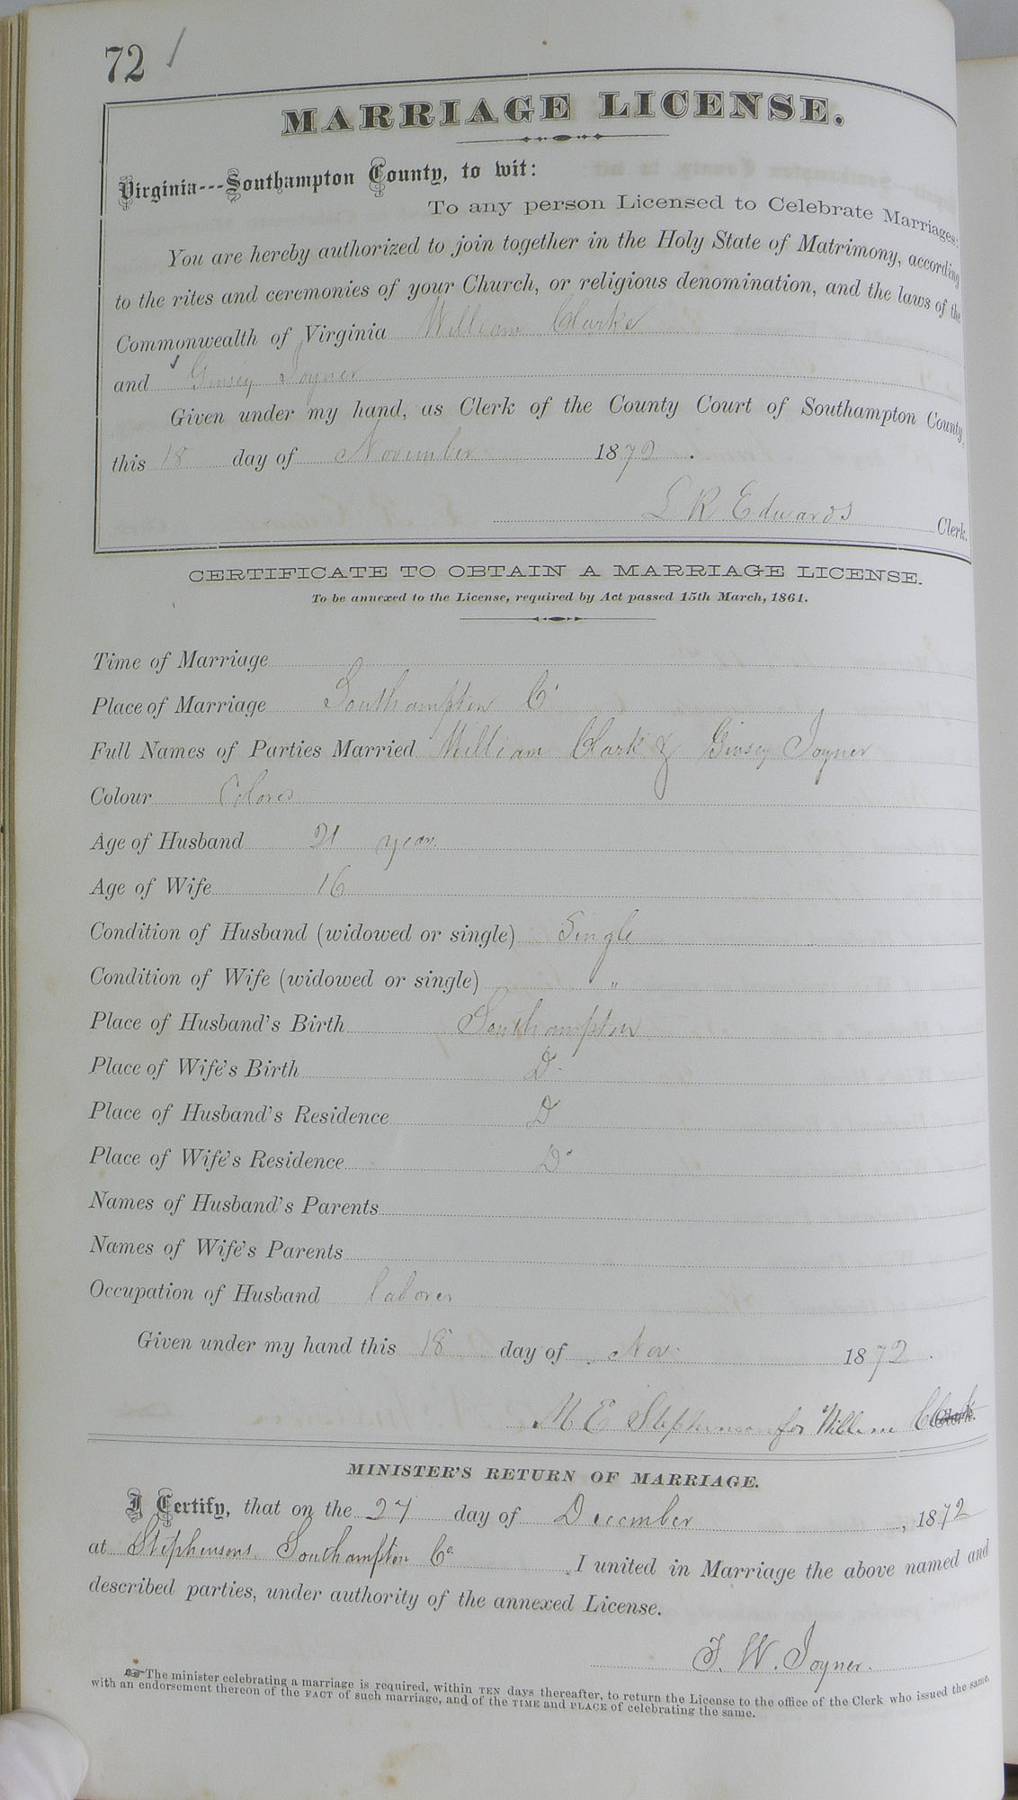 72 /
MARRIAGE LICENSE.
Virginia---Southampton County, to wit:
To any person Licensed to Celebrate Marriages:
You are hereby authorized to join together in the Holy State of Matrimony, according
to the rites and ceremonies of your Church, or religious denomination, and the laws of the
Commonwealth of Virginia William Clarke
and Ginsey Joyner
Given under my hand, as Clerk of the County Court of Southampton County,
this 18 day of November 1872.
L R Edwards Clerk.
CERTIFICATE TO OBTAIN A MARRIAGE LICENSE.
To be annexed to the License, required by Act passed 15th March, 1861.
Time of Marriage
Place of Marriage Southampton Co
Full Names of Parties Married William Clark & Ginsey Joyner
Colour Colored
Age of Husband 21 year
Age of Wife 16
Condition of Husband (widowed or single) Single
Condition of Wife (widowed or single) "
Place of Husband's Birth Southampton
Place of Wife's Birth Do
Place of Husband's Residence Do
Place of Wife's Residence Do
Names of Husband's Parents
Names of Wife's Parents
Occupation of Husband laborer
Given under my hand this 18 day of Nov. 1872.
M E Stephenson for William Clark Clerk.
MINISTER'S RETURN OF MARRIAGE.
I Certify, that on the 27 day of December, 1872
at Stephensons Southampton Co. I united in Marriage the above named and
described parties, under authority of the annexed License.
J. W. Joyner.
☞ The minister celebrating a marriage is required, within TEN days thereafter, to return the License to the office of the Clerk who issued the same,
with an endorsement thereon of the FACT of such marriage, and of the TIME and PLACE of celebrating the same.